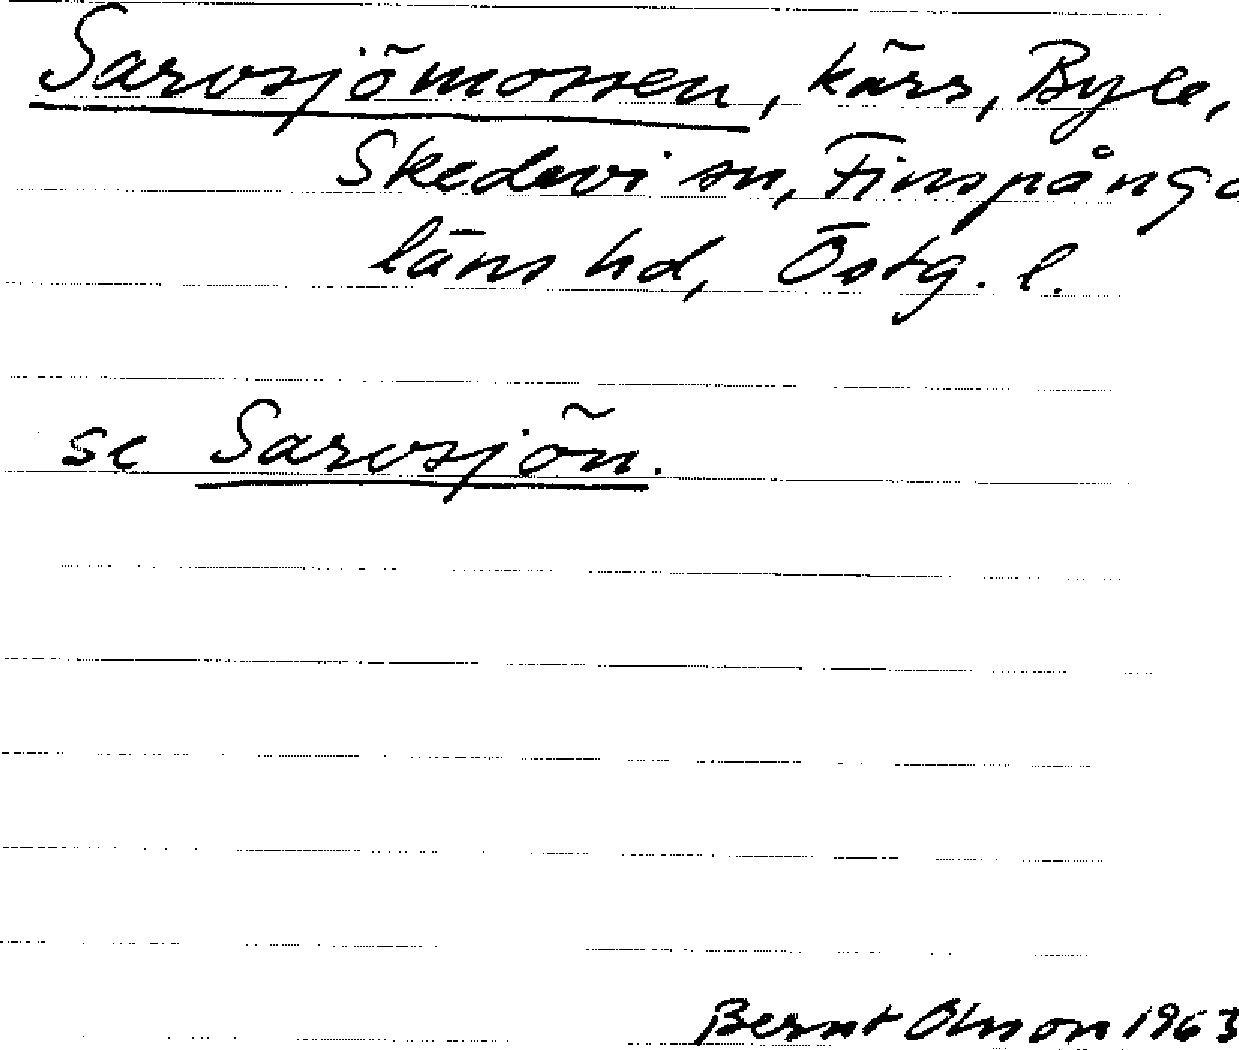 Sarvsjömossen, kärr, Byle,
Skedevi sn, Finspånga
läns hd, Östg. l.
se Sarvsjön.
Bernt Olsson 1963